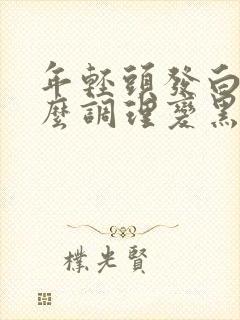 年輕頭發白
麼調理變黑
樸光賢